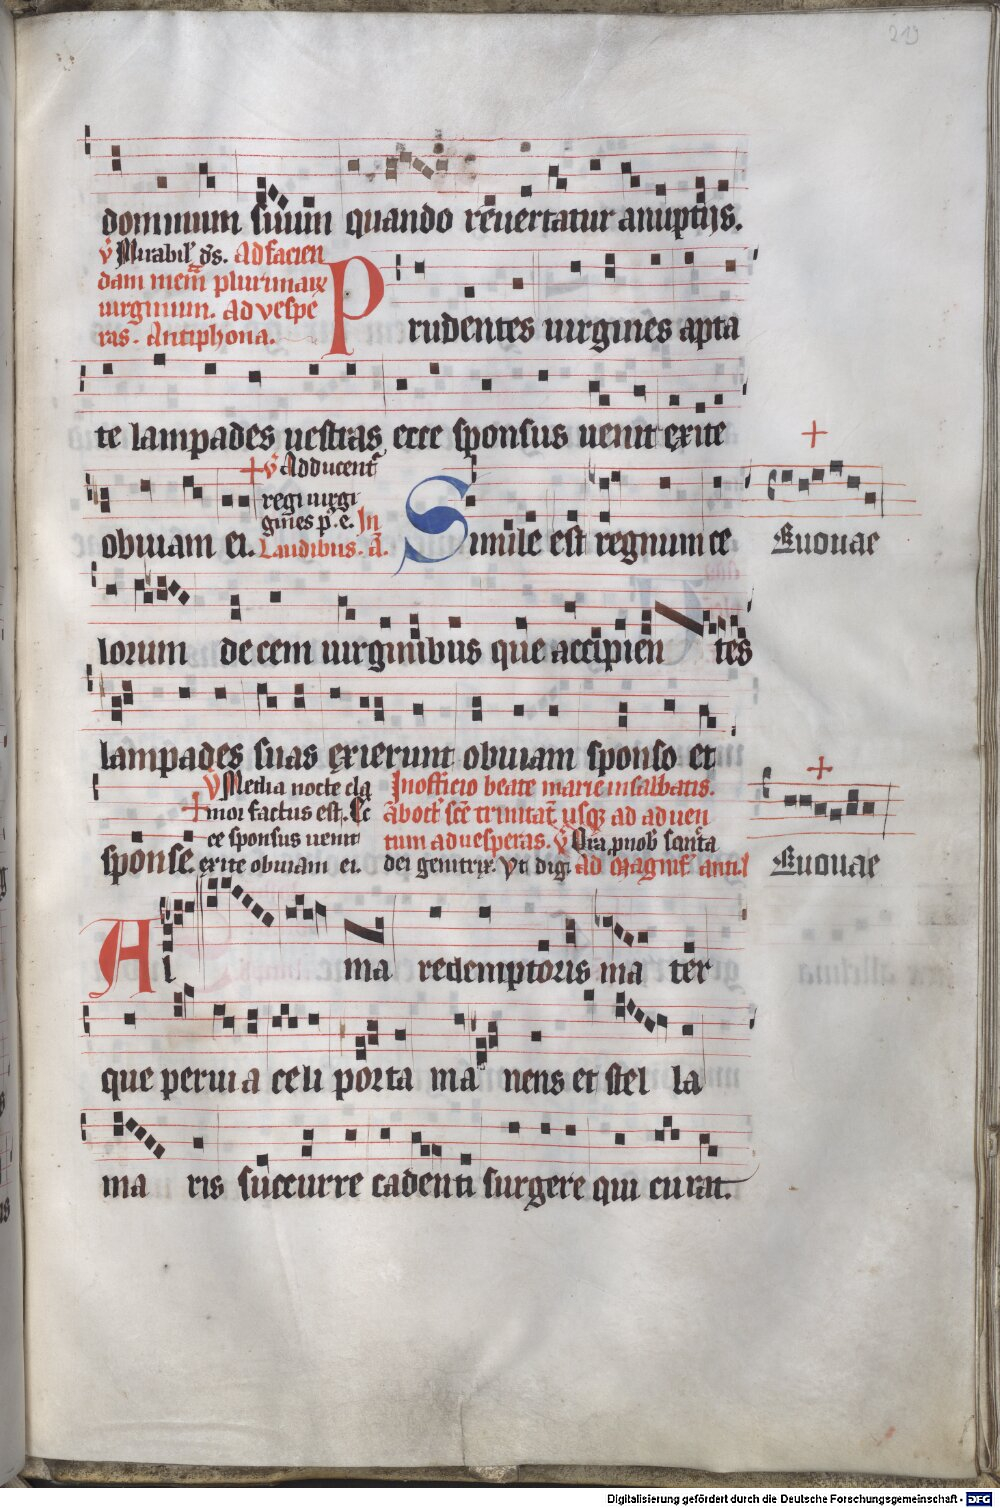 219
dominum suum quando reuertatur a nuptijs.
v̄ Mirabil' ds. Ad facien
dam mem̄ plurimaꝝ
uirginum. Ad vespe
ras. Antiphona.
Prudentes uirgines apta
te lampades uestras ecce sponsus uenit exite
+ v̄ Adducent̄
regi uirgi
gines p'. e. In
Laudibus. a̅.
obuiam ei.
Simile est regnum ce
+
Euouae
lorum decem uirginibus que accipien tes
lampades suas exierunt obuiam sponso et
v̄ Media nocte cla
+ mor factus est. Ec
ce sponsus uenit
sponse. exite obuiam ei.
In officio beate marie in sabbatis.
ab oct' scē trinitat' usqꝫ ad aduen
tum ad uesperas. v̄ Ora pnob' sancta
dei genitrix. Vt digi Ad magnif' ant.
+
Euouae
Al ma redemptoris ma ter
que peruia celi porta ma nens et stel la
ma ris succurre cadenti surgere qui curat.
Digitalisierung gefördert durch die Deutsche Forschungsgemeinschaft - DFG